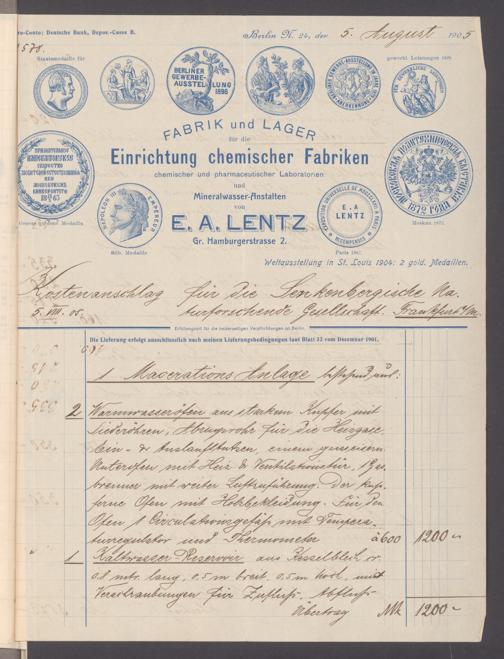 ro-Conto: Deutsche Bank, Depos.-Casse B.
Berlin N. 24, der 5. August 1905
1578.
Staatsmedaille für
gewerbl. Leistungen
BERLINER
GEWERBE-
AUSSTELLUNG
1896
FABRIK und LAGER
für die
Einrichtung chemischer Fabriken
chemischer und pharmaceutischer Laboratorien
und
Mineralwasser-Anstalten
von
E. A. LENTZ
Gr. Hamburgerstrasse 2.
NAPOLEON III EMPEREUR
Silb. Medaille
E. A
LENTZ
RECOMPENSES
Paris 1867
Moskau 1872.
Weltausstellung in St. Louis 1904: 2 gold. Medaillen.
Kostenanschlag für die Senkenbergische Na
5. VIII. 05. turforschende Gesellschaft. Frankfurt a/M.
Erfüllungsort für die beiderseitigen Verpflichtungen ist Berlin.
Die Lieferung erfolgt ausschliesslich nach meinen Lieferungsbedingungen laut Blatt 32 vom Dezember 1901.
1 Macerations Anlage bestehend aus:
2 Warmwasseröfen aus starkem Kupfer mit
Siederöhren, Abzugrohr für die Heizgase
Ein- & Auslaufstutzen, einem gusseisern
Unterofen mit Heiz & Ventilationstür, 1 Gas
brenner mit weiter Luftzuführung. Der kup
ferne Ofen mit Holzbekleidung. Für den
Ofen 1 Circulationsgefäss mit Tempera
turregulator und Thermometer à 600 1200 -
1 Kaltwasser-Reservoir aus Kesselblech v.
0.8 mtr. lang, 0.5 m breit, 0.5 m hoch, mit
Verschraubungen für Zufluss, Abfluss
Übertrag Mk 1200 -